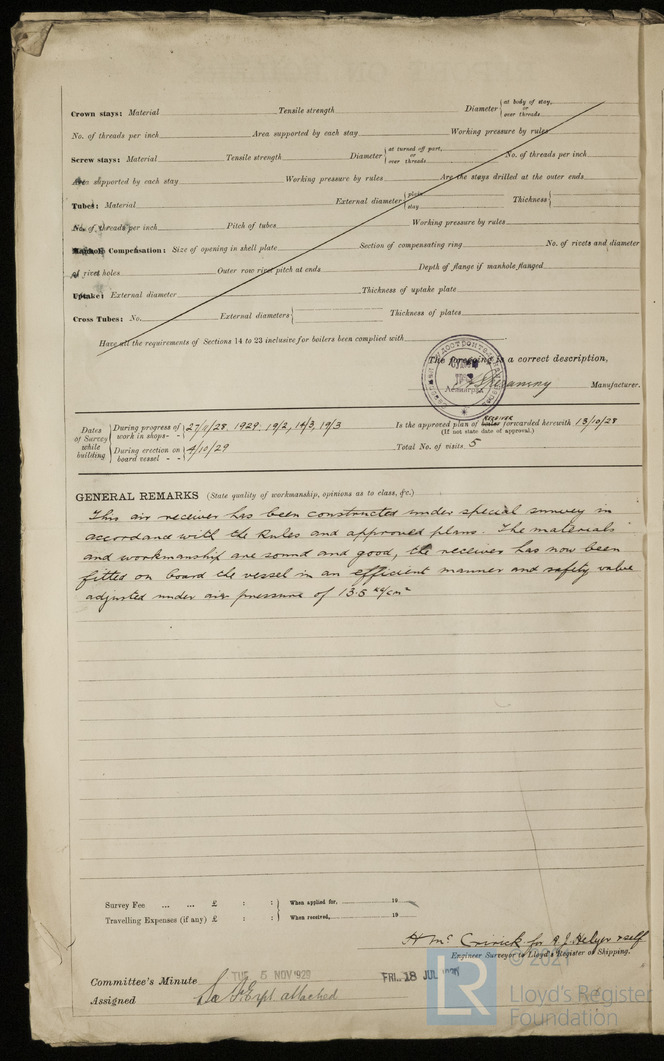 Crown stays: Material Tensile strength Diameter { at body of stay, or over threads
No. of threads per inch Area supported by each stay Working pressure by rules
Screw stays: Material Tensile strength Diameter { at turned off part, or over threads No. of threads per inch
Area supported by each stay Working pressure by rules Are the stays drilled at the outer ends
Tubes: Material External diameter { plain stay Thickness {
No. of threads per inch Pitch of tubes Working pressure by rules
Manhole Compensation: Size of opening in shell plate Section of compensating ring No. of rivets and diameter
of rivet holes Outer row rivet pitch at ends Depth of flange if manhole flanged
Uptake: External diameter Thickness of uptake plate
Cross Tubes: No. External diameters { Thickness of plates
Have all the requirements of Sections 14 to 23 inclusive for boilers been complied with
The foregoing is a correct description,
Manufacturer.
Ленинград
Dates of Survey while building
During progress of work in shops - - 27/11/28. 1929: 19/2, 14/3, 19/3
During erection on board vessel - - 4/10/29
Is the approved plan of boiler RECEIVER forwarded herewith 13/10/28
(If not state date of approval.)
Total No. of visits 5
GENERAL REMARKS (State quality of workmanship, opinions as to class, &c.)
This air receiver has been constructed under special survey in
accordance with the Rules and approved plans. The materials
and workmanship are sound and good, the receiver has now been
fitted on board the vessel in an efficient manner and safety valve
adjusted under air pressure of 13.5 kg/cm²
Survey Fee ... ... £ : : } When applied for, 19
Travelling Expenses (if any) £ : : } When received, 19
H Mc Cririck for A J. Helyer & self
Engineer Surveyor to Lloyd's Register of Shipping.
© 2021
Committee's Minute TUE. 5 NOV 1929 FRI. 18 JUL
Assigned attached
LR
Lloyd's Register
Foundation